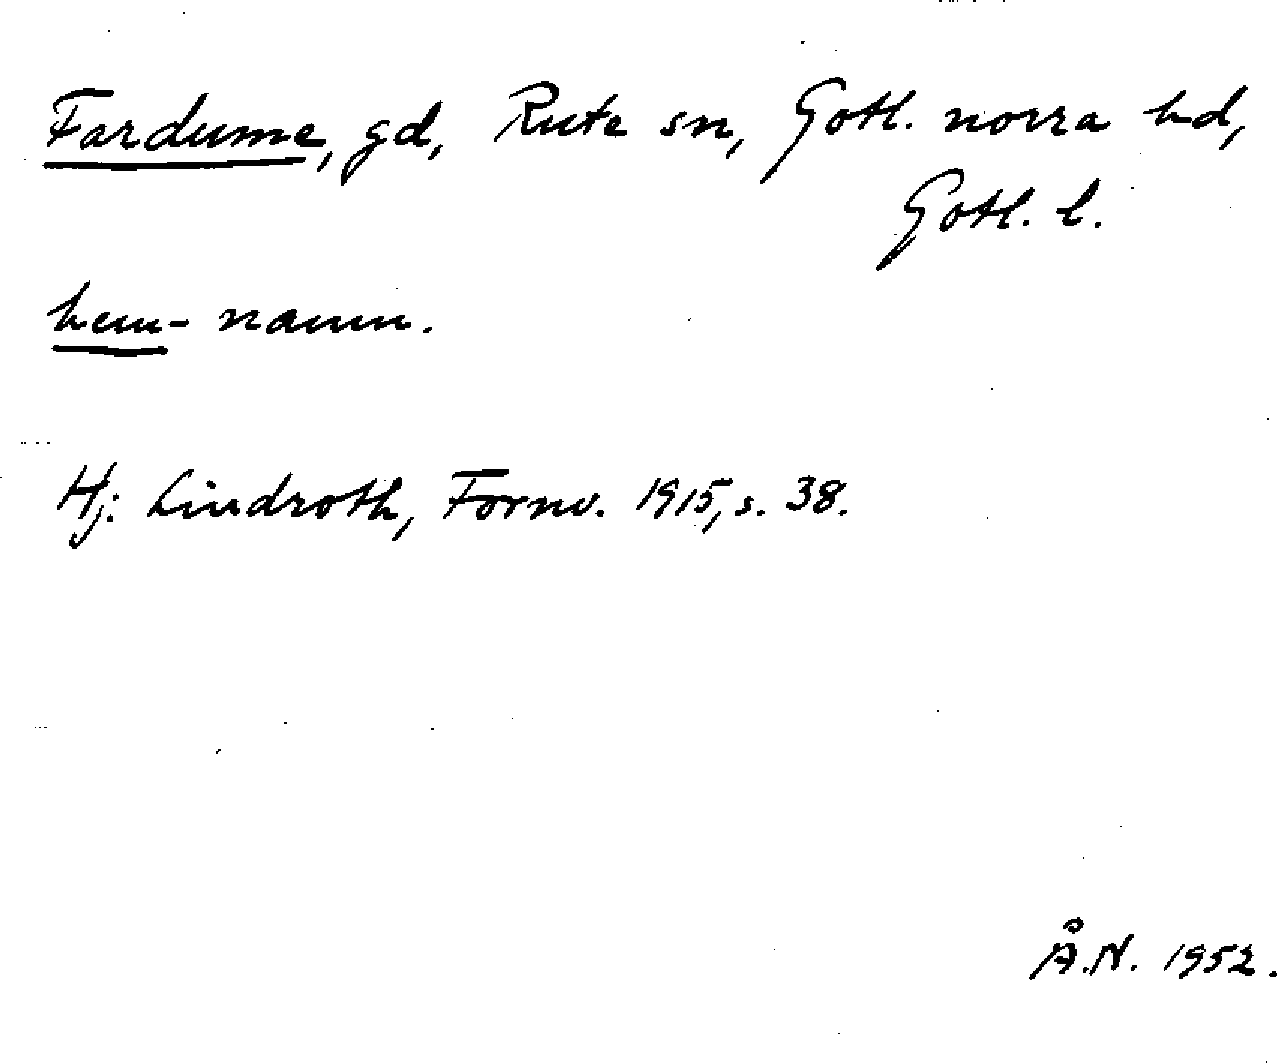 Fardume, gd, Rute sn, Gotl. norra hd,
Gotl. l.
hem- namn.
Hj. Lindroth, Fornv. 1915, s. 38.
Å.N. 1952.